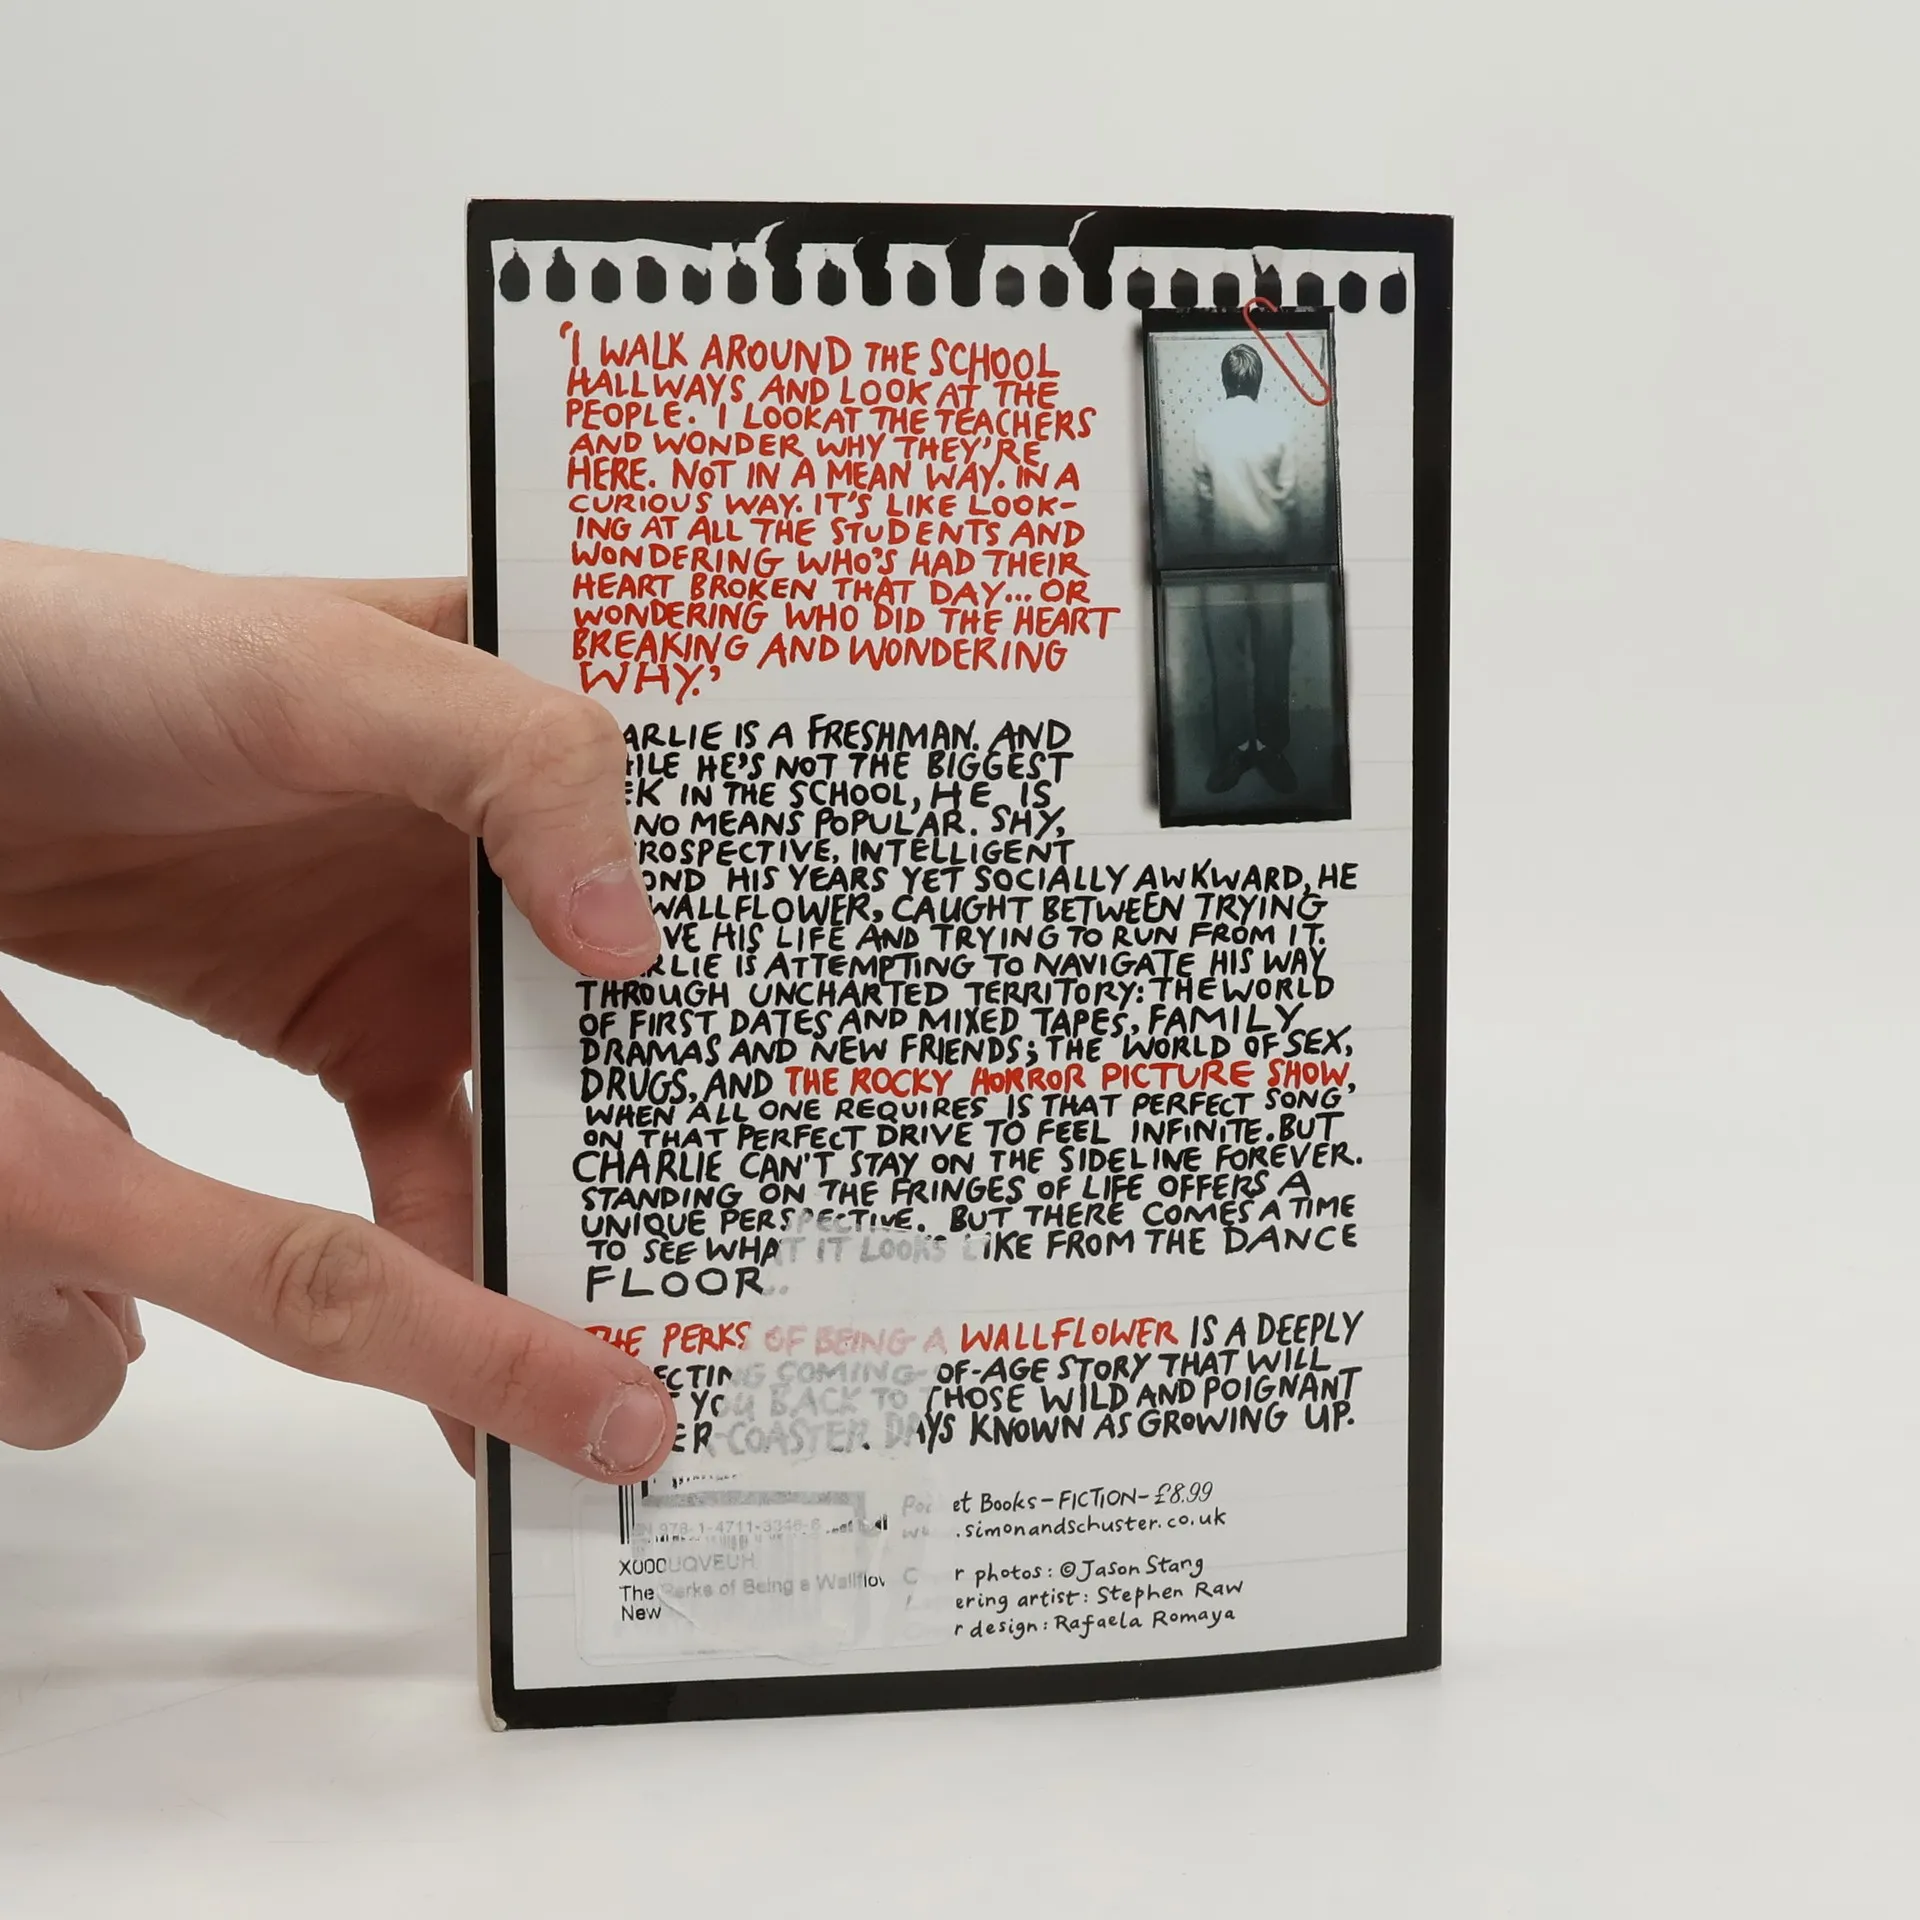 'I WALK AROUND THE SCHOOL
HALLWAYS AND LOOK AT THE
PEOPLE. I LOOK AT THE TEACHERS
AND WONDER WHY THEY'RE
HERE. NOT IN A MEAN WAY. IN A
CURIOUS WAY. IT'S LIKE LOOK-
ING AT ALL THE STUDENTS AND
WONDERING WHO'S HAD THEIR
HEART BROKEN THAT DAY... OR
WONDERING WHO DID THE HEART
BREAKING AND WONDERING
WHY.'
ARLIE IS A FRESHMAN. AND
ILE HE'S NOT THE BIGGEST
EK IN THE SCHOOL, HE IS
NO MEANS POPULAR. SHY,
ROSPECTIVE, INTELLIGENT
OND HIS YEARS YET SOCIALLY AWKWARD, HE
WALLFLOWER, CAUGHT BETWEEN TRYING
VE HIS LIFE AND TRYING TO RUN FROM IT.
RLIE IS ATTEMPTING TO NAVIGATE HIS WAY
THROUGH UNCHARTED TERRITORY: THE WORLD
OF FIRST DATES AND MIXED TAPES, FAMILY
DRAMAS AND NEW FRIENDS; THE WORLD OF SEX,
DRUGS, AND THE ROCKY HORROR PICTURE SHOW,
WHEN ALL ONE REQUIRES IS THAT PERFECT SONG
ON THAT PERFECT DRIVE TO FEEL INFINITE. BUT
CHARLIE CAN'T STAY ON THE SIDELINE FOREVER.
STANDING ON THE FRINGES OF LIFE OFFERS A
UNIQUE PERSPECTIVE. BUT THERE COMES A TIME
TO SEE WHAT IT LOOKS LIKE FROM THE DANCE
FLOOR...
THE PERKS OF BEING A WALLFLOWER IS A DEEPLY
ECTING COMING-OF-AGE STORY THAT WILL
YOU BACK TO THOSE WILD AND POIGNANT
ER-COASTER DAYS KNOWN AS GROWING UP.
Pocket Books-FICTION-£8.99
.simonandschuster.co.uk
978-1-4711-3346-6
X000UQVEUH
The Perks of Being a Wallflow
New
r photos: ©Jason Stang
ering artist: Stephen Raw
r design: Rafaela Romaya